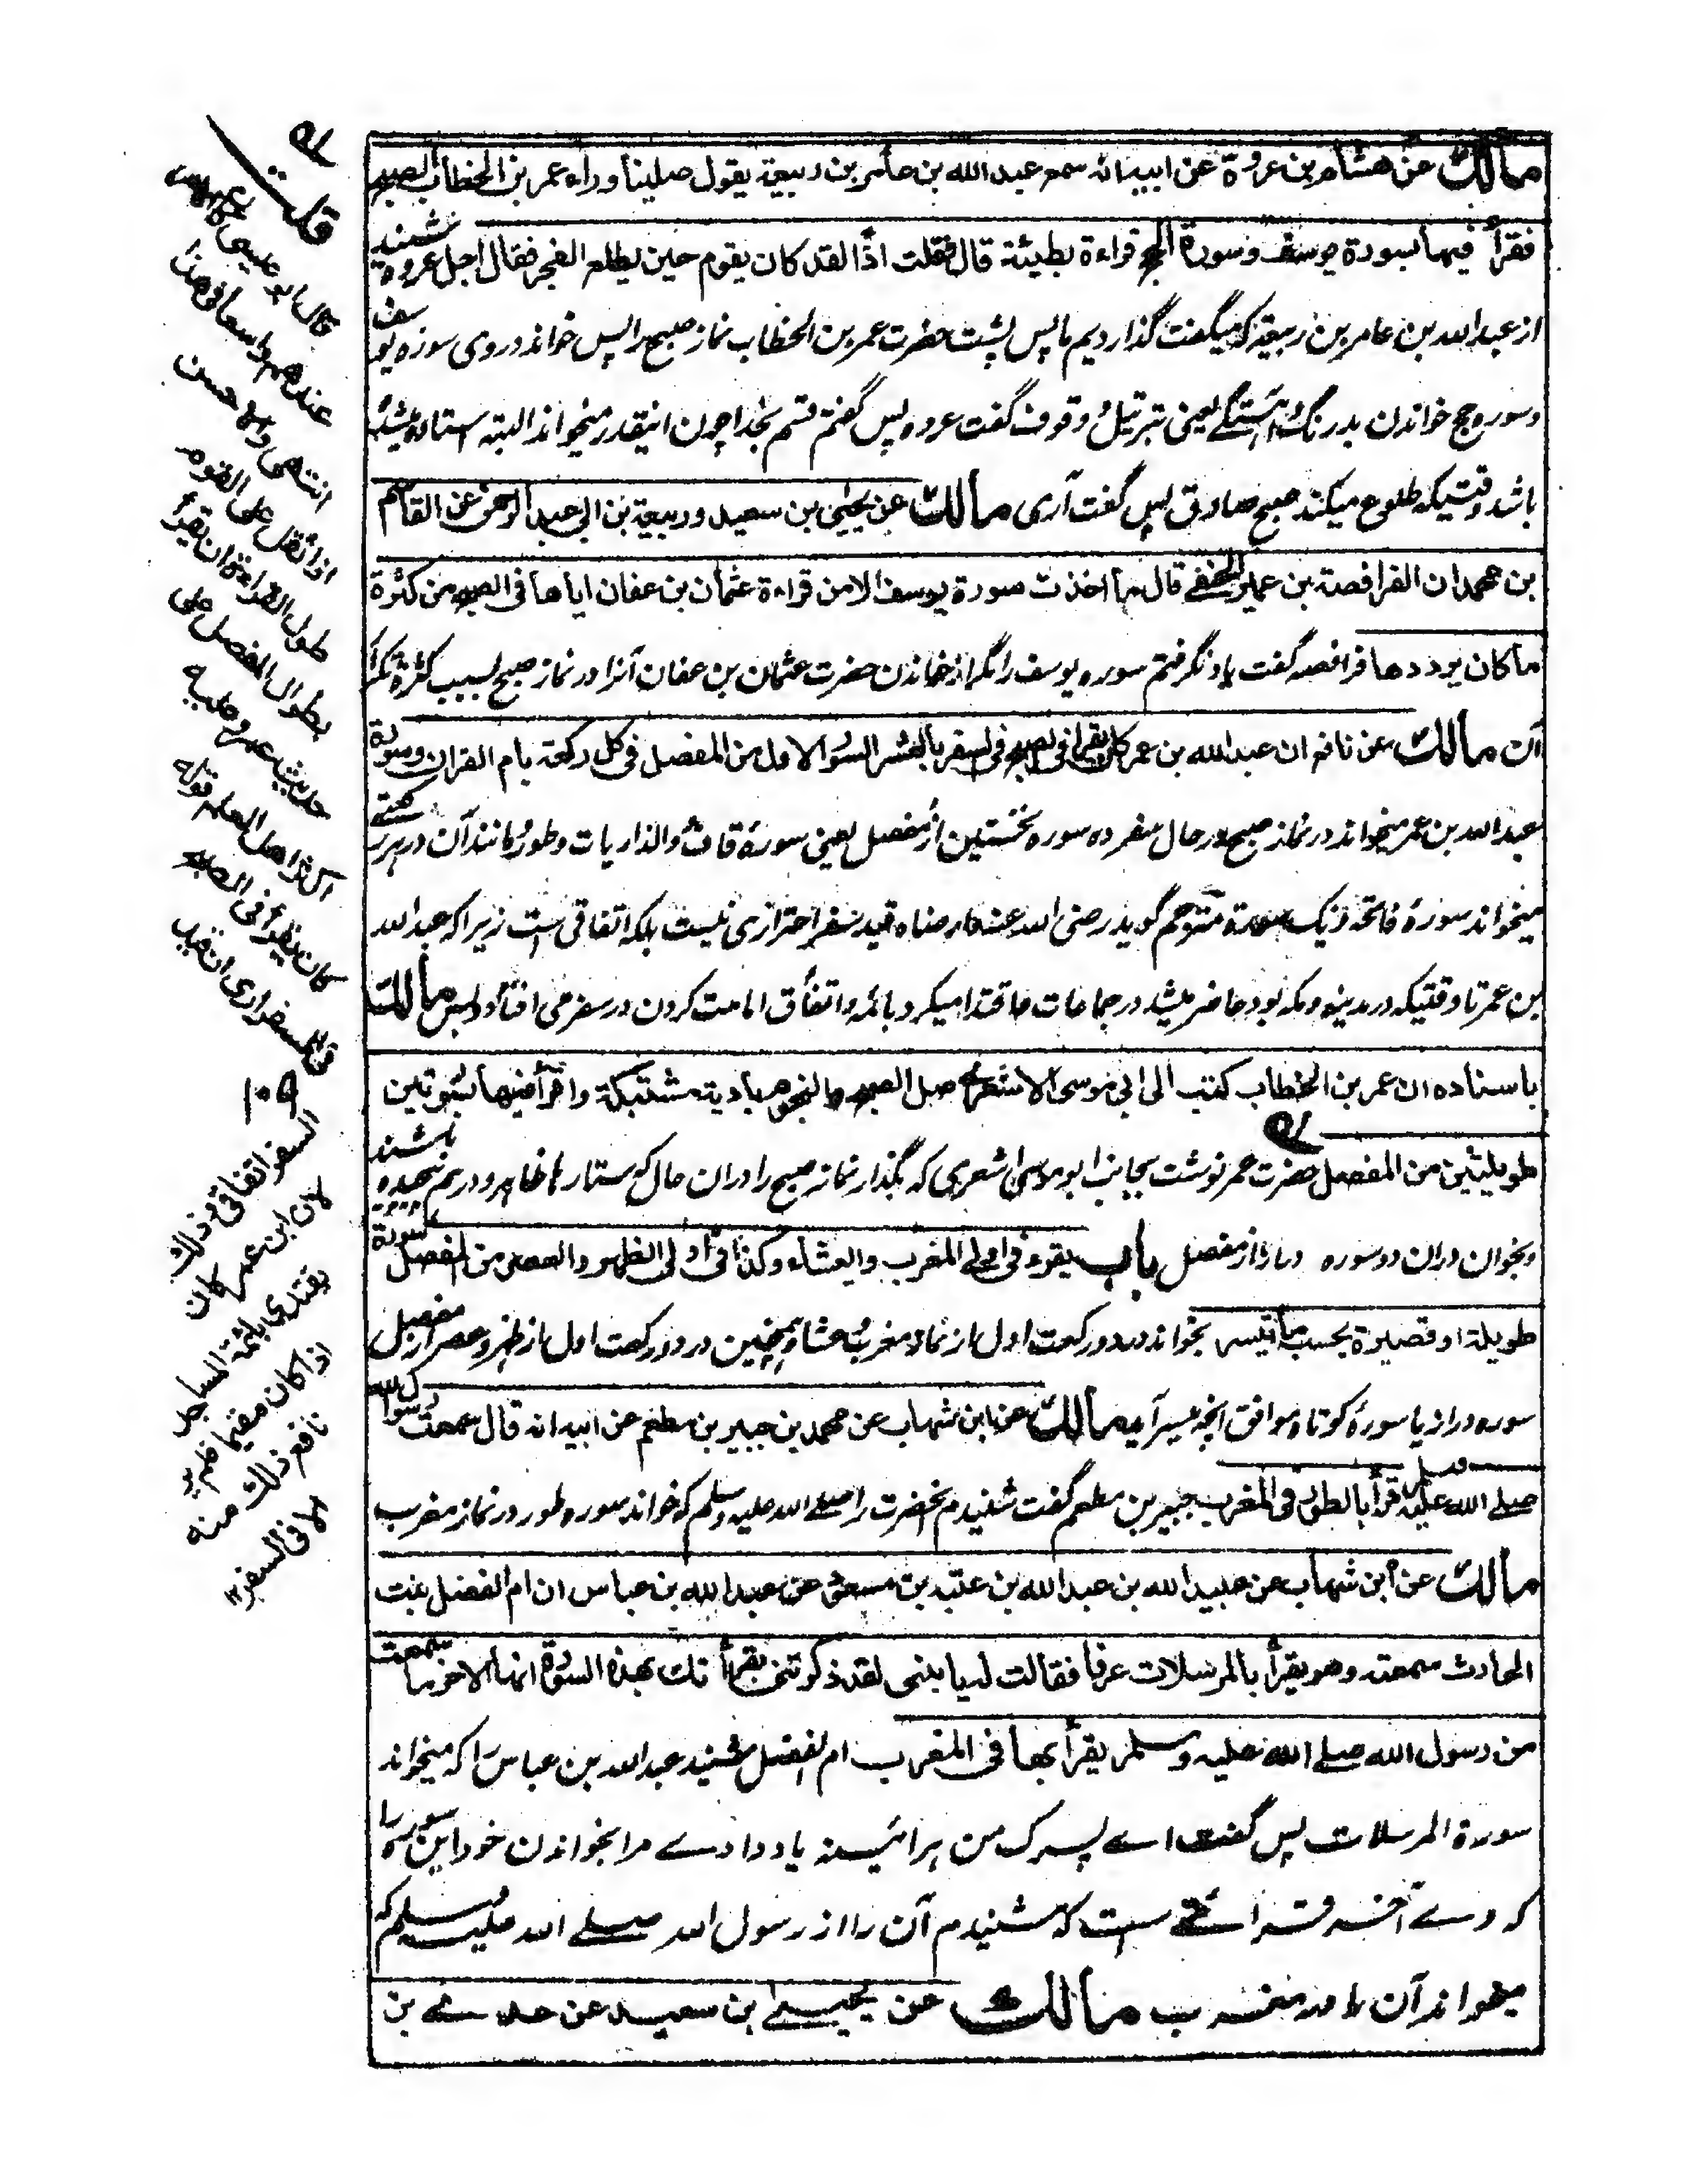 مالك عن هشام بن عروة عن ابيه انه سمع عبد الله بن عامر بن ربيعة يقول صلينا وراء عمر بن الخطاب الصبح
فقرأ فيها بسورة يوسف وسورة الحج قراءة بطيئة قال فقلت اذًا لقد كان يقوم حين يطلع الفجر فقال اجل عروه شنید
از عبد الله بن عامر بن ربیعة که میگفت گذاردیم ما پس پشت حضرت عمر بن الخطاب نماز صبح را پس خواند در وی سوره یوسف
وسوره حج خواندن بدرنگ و آهستگے یعنی بترتیل و وقوف گفت عروه پس گفتم قسم بخدا چون اینقدر میخواند البته استاده میشده
باشد وقتیکه طلوع میکند صبح صادق پس گفت آری مالك عن يحيى بن سعيد وربيعة بن ابي عبد الرحمن عن القاسم
بن محمد ان الفرافصة بن عمير الحنفي قال ما اخذت سورة يوسف الا من قراءة عثمان بن عفان اياها في الصبح من كثرة
ما كان يرددها فرافصه گفت یاد نگرفتم سوره یوسف را مگر از خواندن حضرت عثمان بن عفان آنرا در نماز صبح بسبب کثرة تکرار
آن مالك عن نافع ان عبد الله بن عمر كان يقرأ في الصبح في السفر بالعشر السور الاول من المفصل في كل ركعة بام القران وسورة
عبد الله بن عمر میخواند در نماز صبح در حال سفر ده سوره نخستین از مفصل یعنی سورۀ قاف والذاریات وطور ومانند آن در هر رکعتے
میخواند سورۀ فاتحه ویک سورة مترجم گوید رضی الله عنه وارضاه قید سفر احترازی نیست بلکه اتفاقی است زیرا که عبد الله
بن عمر تا وقتیکه در مدینه ومکه بود حاضر میشد در جماعات واقتدا میکرد بائمه واتفاق امامت کردن در سفر می افتاد وبس مالك
باسناده ان عمر بن الخطاب كتب الى ابي موسى الاشعري صل الصبح والنجوم بادية مشتبكة واقرأ فيها بسورتين
طويلتين من المفصل حضرت عمر نوشت بجانب ابو موسی اشعری که بگذار نماز صبح را در آن حال که ستارها ظاهر و درهم پیچیده باشند
وبخوان دران دو سوره دراز از مفصل باب يقرء في اوليي المغرب والعشاء وكذا في اوليي الظهر والعصر من المفصل سورة
طويلة او قصيرة بحسب ما تيسر بخواند در دو رکعت اول از نماز مغرب وعشا وهمچنین در دو رکعت اول از ظهر وعصر از مفصل
سوره دراز یا سورۀ کوتاه موافق آنچه میسر آید مالك عن ابن شهاب عن محمد بن جبير بن مطعم عن ابيه انه قال سمعت رسول الله
صلى الله عليه وسلم قرأ بالطور في المغرب جبیر بن مطعم گفت شنیدم آنحضرت را صلے الله علیه وسلم که خواند سوره طور در نماز مغرب
مالك عن ابن شهاب عن عبيد الله بن عبد الله بن عتبة بن مسعود عن عبد الله بن عباس ان ام الفضل بنت
الحارث سمعته وهو يقرأ بالمرسلات عرفا فقالت له يا بني لقد ذكرتني بقراءتك بهذه السورة انها لاخر ما سمعت
من رسول الله صلے الله عليه وسلم يقرأ بها في المغرب ام الفضل شنید عبد الله بن عباس را که میخواند
سورة المرسلات پس گفت اے پسرک من هر آئینه یاد دادے مرا بخواندن خود این سوره را
که وے آخر قرائتے ست که شنیدم آن را از رسول الله صلے الله علیه وسلم که
میخواند آن را در مغرب مالك عن يحيى بن سعيد عن عدي بن
قلت
قال ابو عيسى
عندهم واسعا في هذا
انتهى وايه حسن
اذا ثقل على القوم
طول القراءة ان يقرأ
بطوال المفصل على
حديث عمر وعليه
اكثر اهل العلم قوله
كان يقرأ في الصبح
في السفر ارى ان قيد
السفر اتفاقي وذلك
لان ابن عمر كان
يقتدي بائمة المساجد
اذا كان مقيما فلم ير
نافع ذلك منه
الا في السفر ١٢